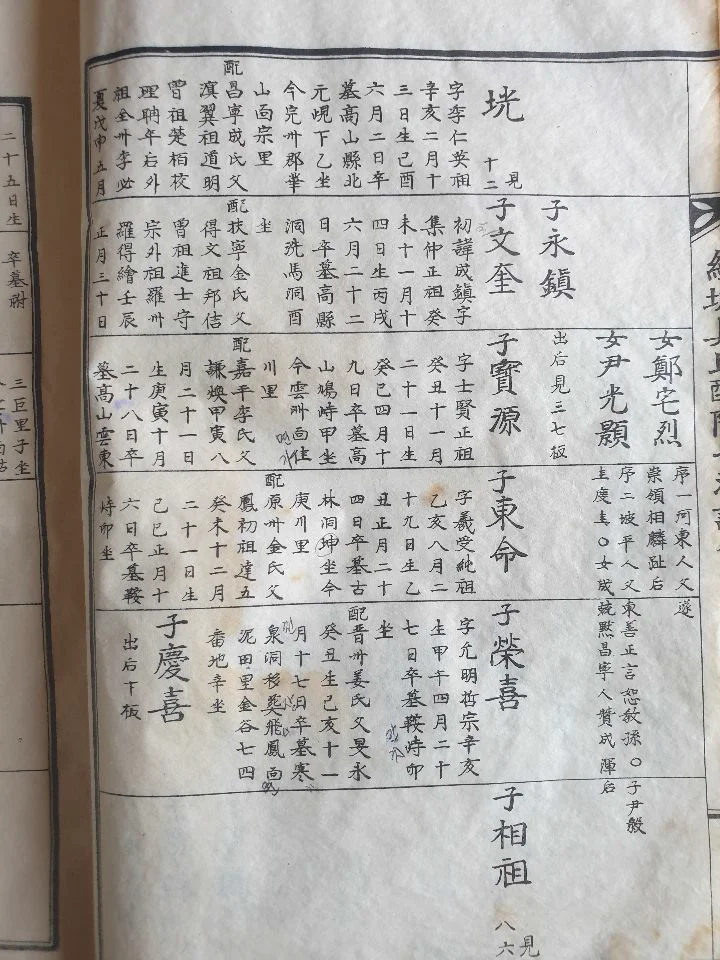 垙
見
十二
字李仁英祖
辛亥二月十
三日生己酉
六月二日卒
墓高山縣北
元峴下乙坐
今完州郡華
山面宗里
配昌寧成氏父
瀷翼祖道明
曾祖楚栢校
理聃年后外
祖全州李必
夏戊申五月
子永鎭
子文奎
初諱成鎭字
集仲正祖癸
未十一月十
四日生丙戌
六月二十二
日卒墓高縣
洞洗馬洞酉
坐
配扶寧金氏父
得文祖邦佶
曾祖進士守
宗外祖羅州
羅得繪壬辰
正月三十日
女鄭宅烈
序一河東人父
崇領相麟趾后
女尹光顥
序二坡平人父
圭慶圭〇女成
遂
東善正言恕敎孫〇子尹毅
兢黙昌寧人贊成渾后
出后見三七板
子寶源
字士賢正祖
癸丑十一月
二十一日生
癸巳四月十
九日卒墓高
山鳩峙甲坐
今雲州面佳
川里
配嘉平李氏父
謙煥甲寅八
月二十一日
生庚寅十月
二十八日卒
墓高山雲東
子東命
字羲受純祖
乙亥八月二
十九日生乙
丑正月二十
四日卒墓古
林洞坤坐今
庚川里
配原州金氏父
鳳初祖達五
癸未十二月
二十一日生
己巳正月十
六日卒墓鞍
峙卯坐
子榮喜
字允明哲宗辛亥
生甲午四月二十
七日卒墓鞍峙卯
坐
配晋州姜氏父旻永
癸丑生己亥十一
月十七日卒墓寒
泉洞移葬飛鳳面
泥田里金谷七四
番地辛坐
子慶喜
出后下板
子相祖
見
八六
二十五日生
卒墓附
三巨里子坐